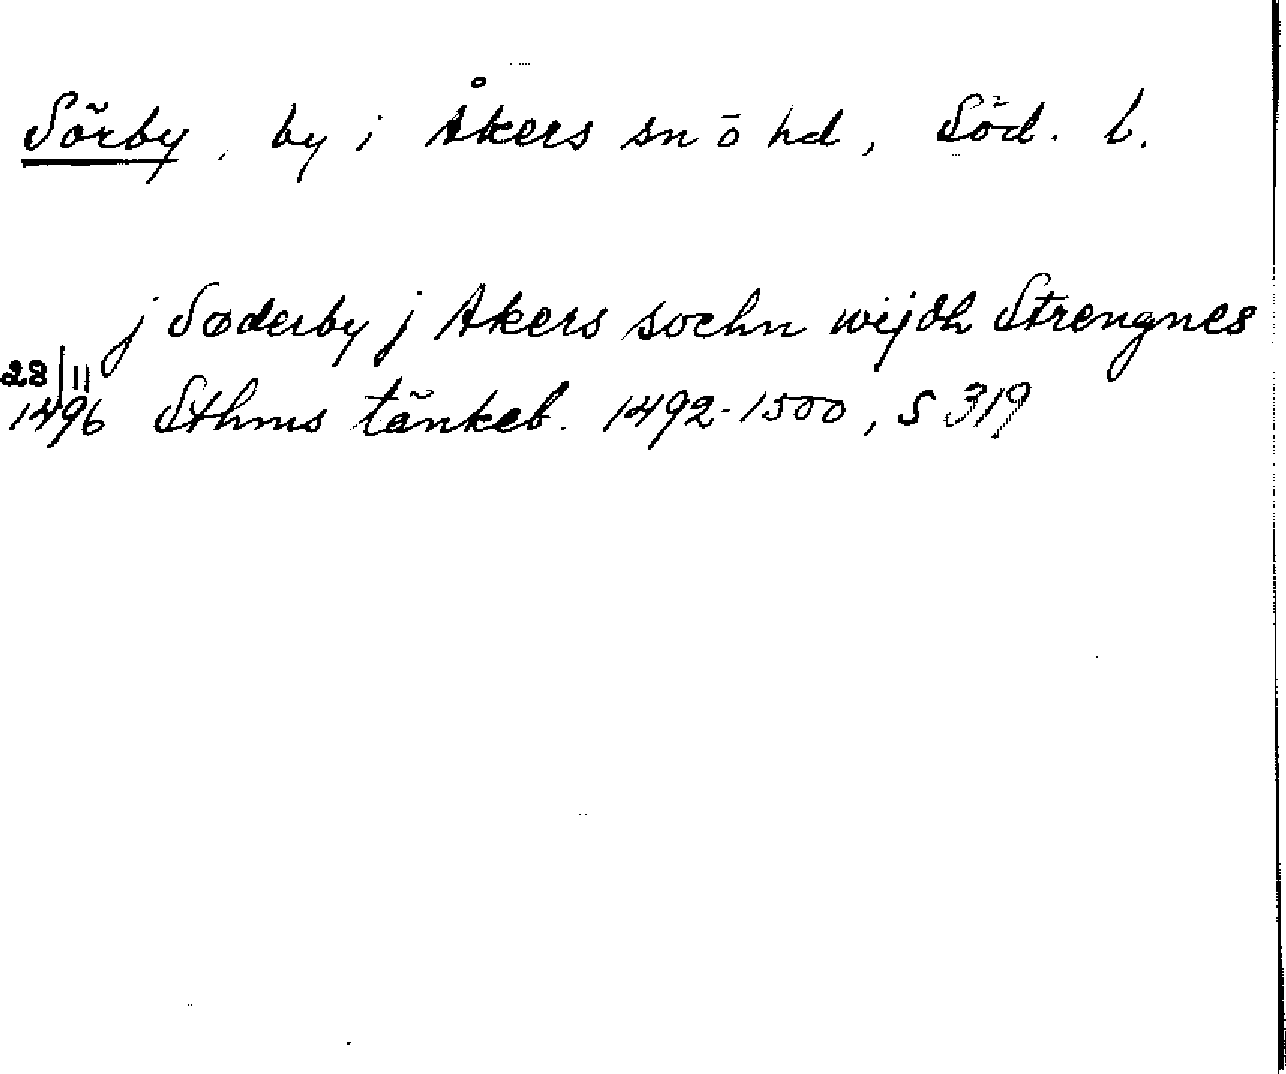 Sörby, by i Åkers sn ō hd, Söd. l.
j Søderby j Akers sochn wijdh Strengnes
28/11
1496 Sthms tänkeb. 1492-1500, S 319